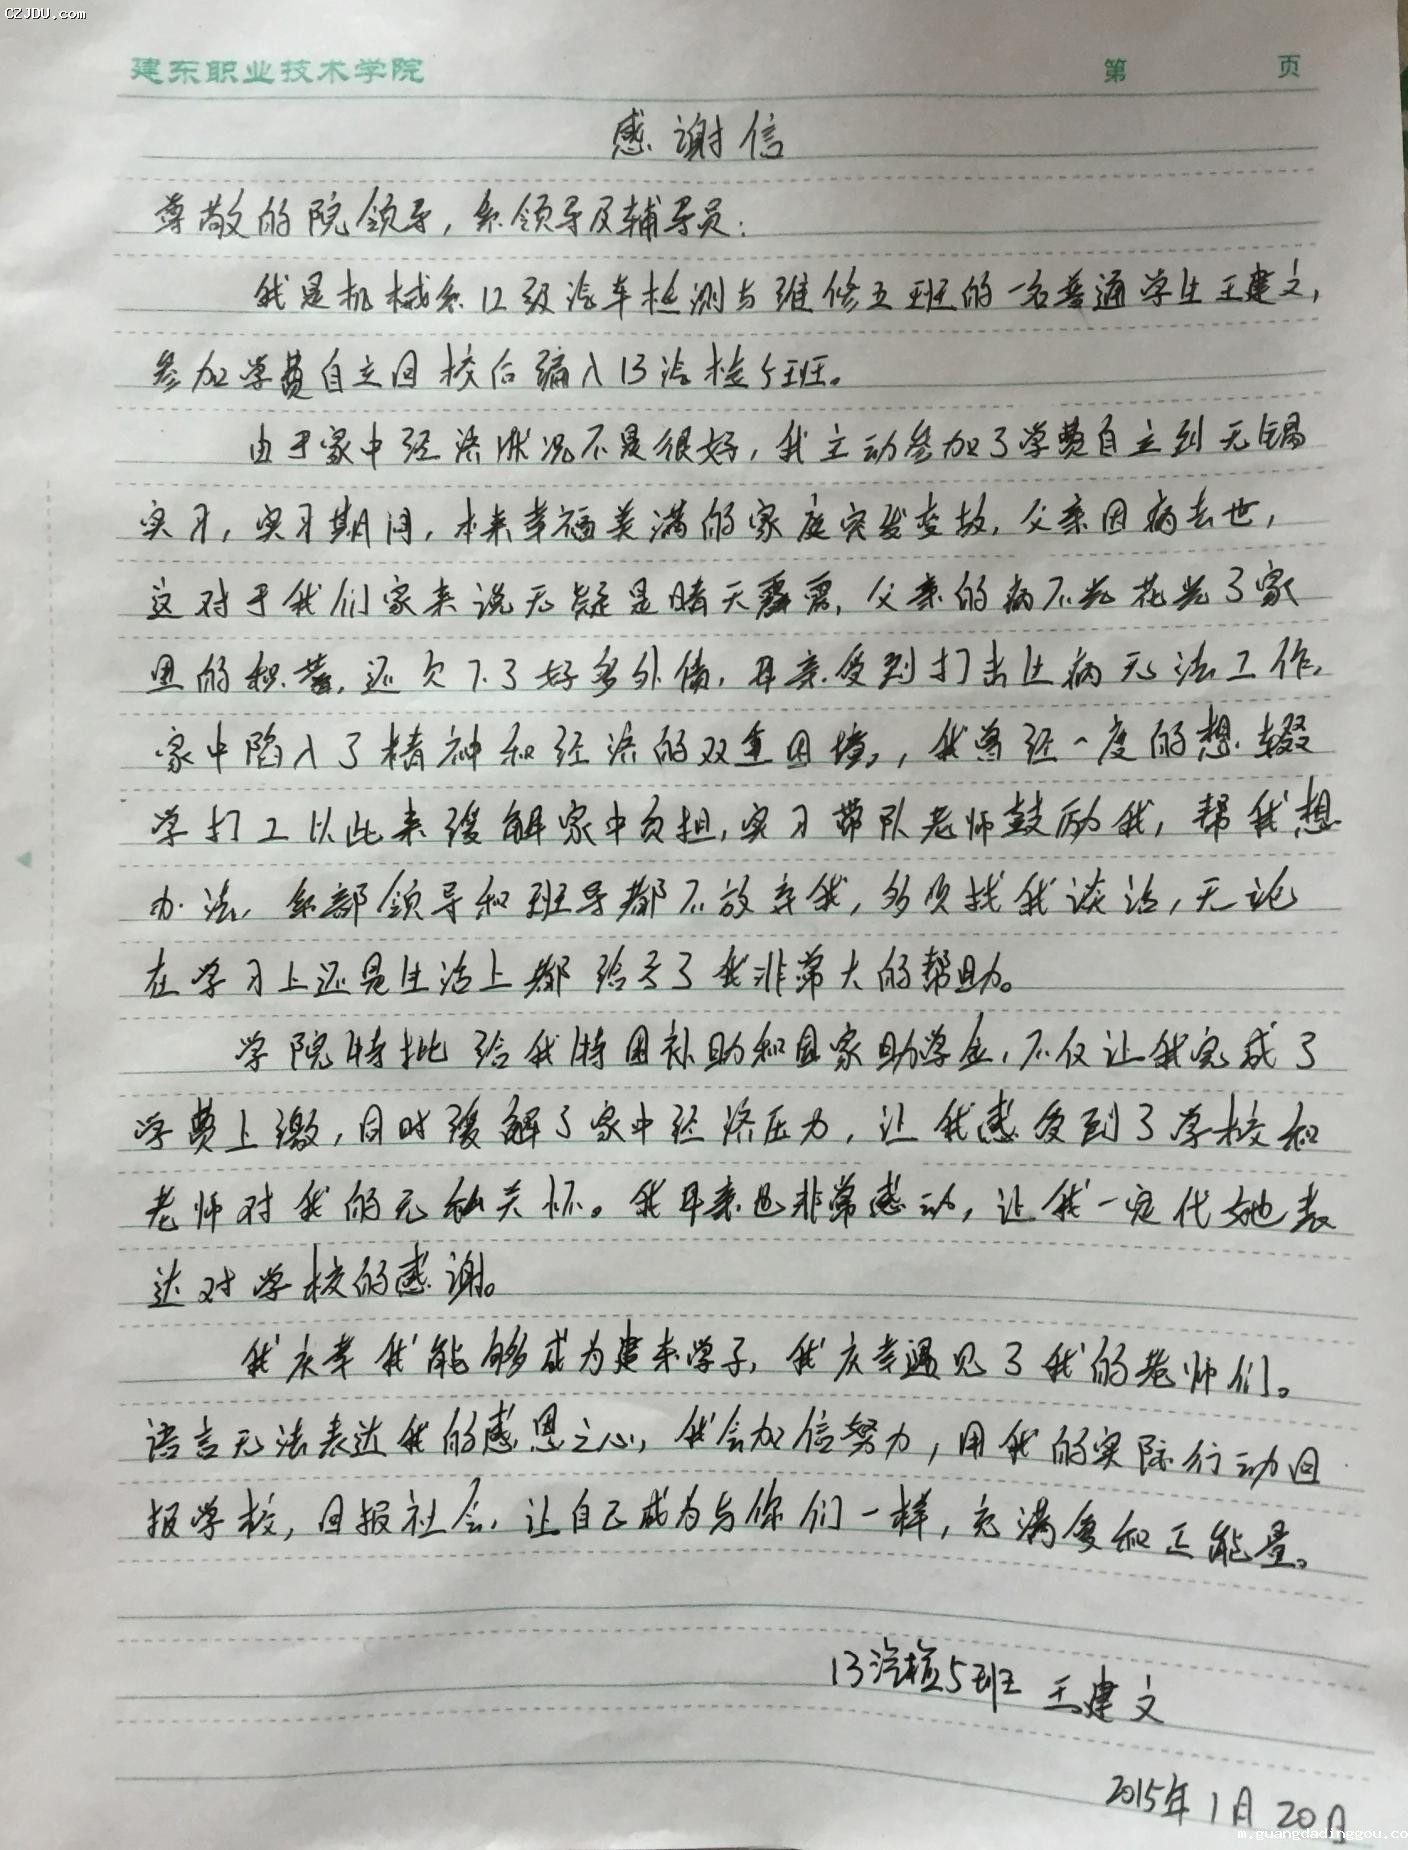 CZJDU.com
建东职业技术学院 第 页
感谢信
尊敬的院领导，系领导及辅导员：
我是机械系12级汽车检测与维修五班的一名普通学生王建文，
参加学费自立回校后编入13汽检5班。
由于家中经济状况不是很好，我主动参加了学费自立到无锡
实习，实习期间，本来幸福美满的家庭突发变故，父亲因病去世，
这对于我们家来说无疑是晴天霹雳，父亲的病不光花光了家
里的积蓄，还欠下了好多外债，母亲受到打击生病无法工作，
家中陷入了精神和经济的双重困境，，我曾经一度的想辍
学打工以此来缓解家中负担，实习带队老师鼓励我，帮我想
办法，系部领导和班导都不放弃我，多次找我谈话，无论
在学习上还是生活上都给予了我非常大的帮助。
学院特批给我特困补助和国家助学金，不仅让我完成了
学费上缴，同时缓解了家中经济压力，让我感受到了学校和
老师对我的无私关怀。我母亲也非常感动，让我一定代她表
达对学校的感谢。
我庆幸我能够成为建东学子，我庆幸遇见了我的老师们。
语言无法表达我的感恩之心，我会加倍努力，用我的实际行动回
报学校，回报社会，让自己成为与你们一样，充满爱和正能量。
13汽检5班 王建文
2015年1月20日
m.guangdadinggou.co